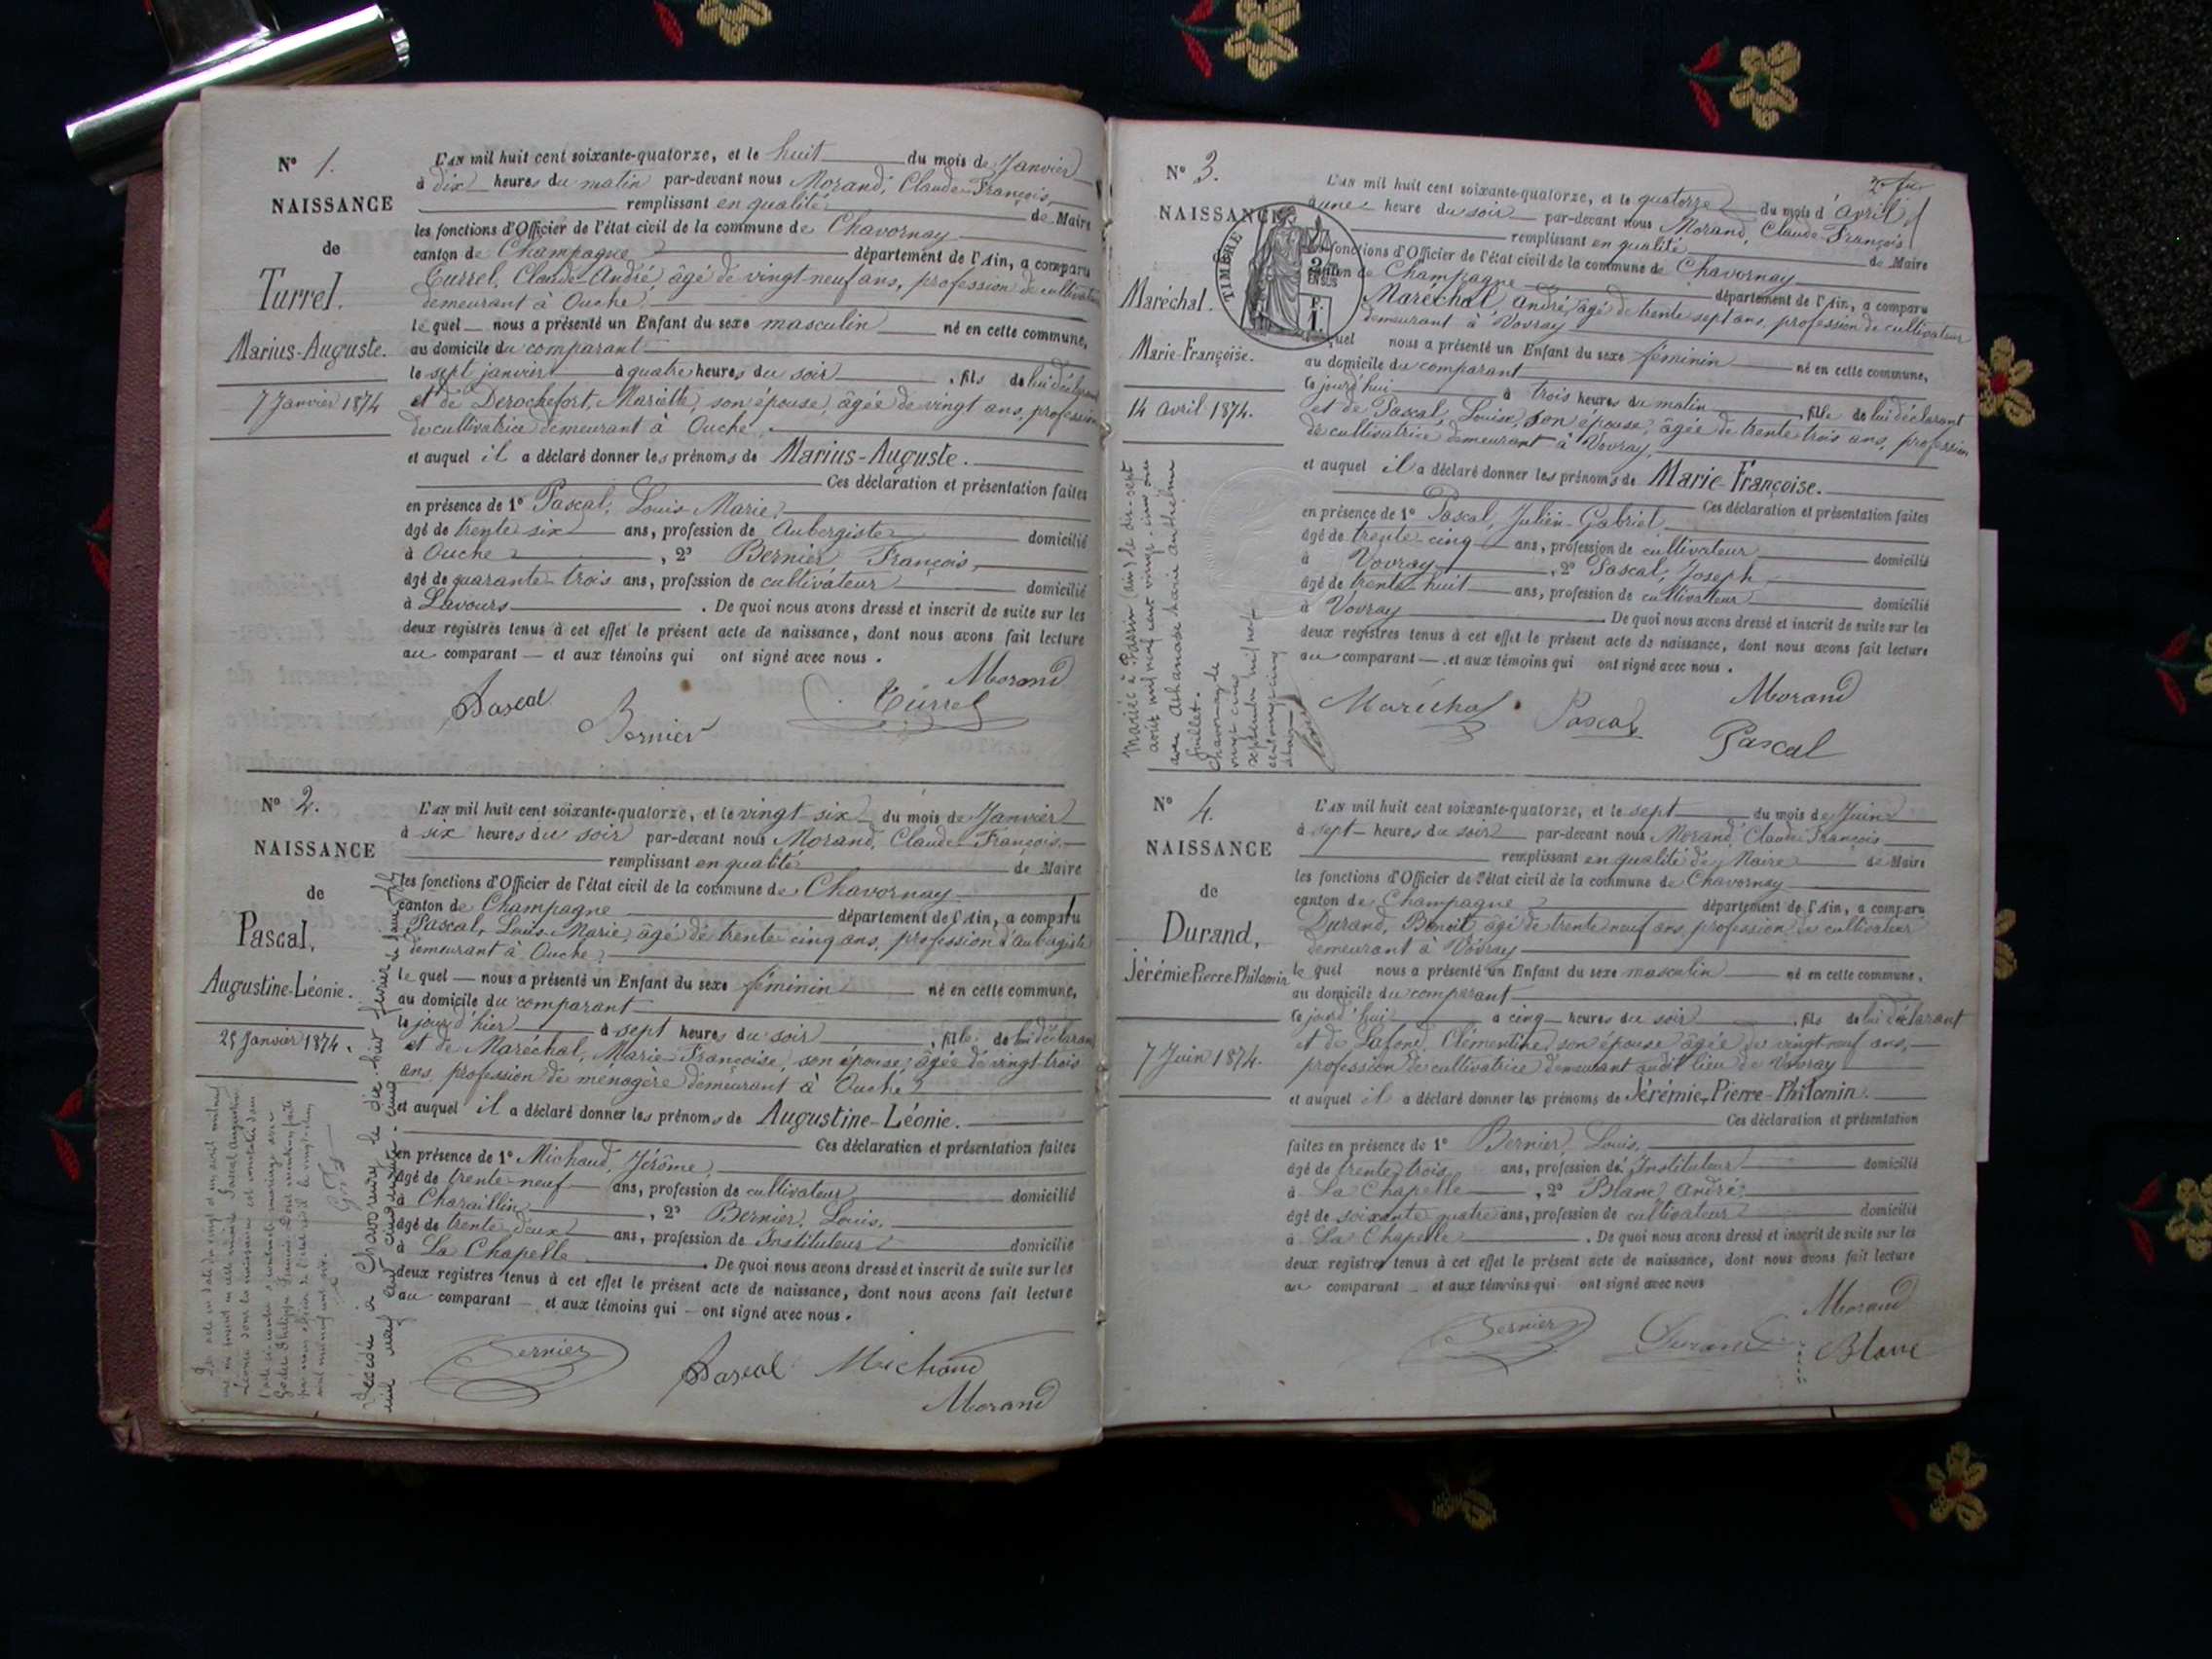 N° 1.
NAISSANCE
de
Turrel.
Marius-Auguste.
7 Janvier 1874
L'AN mil huit cent soixante-quatorze, et le huit du mois de Janvier
à dix heures du matin par-devant nous Morand, Claude-François,
remplissant en qualité de Maire
les fonctions d'Officier de l'état civil de la commune de Chavornay
canton de Champagne département de l'Ain, a comparu
Turrel, Claude-André, âgé de vingt-neuf ans, profession de cultivateur
demeurant à Ouche,
lequel nous a présenté un Enfant du sexe masculin né en cette commune,
au domicile du comparant
le sept janvier à quatre heures du soir, fils de lui déclarant
et de Derochefort, Mariette, son épouse, âgée de vingt ans, profession
de cultivatrice demeurant à Ouche,
et auquel il a déclaré donner les prénoms de Marius-Auguste.
Ces déclaration et présentation faites
en présence de 1° Pascal, Louis Marie,
âgé de trente six ans, profession de Aubergiste domicilié
à Ouche, 2° Bernier François,
âgé de quarante-trois ans, profession de cultivateur domicilié
à Lavours. De quoi nous avons dressé et inscrit de suite sur les
deux registres tenus à cet effet le présent acte de naissance, dont nous avons fait lecture
au comparant et aux témoins qui ont signé avec nous.
Morand
Pascal
Bernier
Turrel
N° 2.
NAISSANCE
de
Pascal,
Augustine-Léonie.
25 Janvier 1874.
L'AN mil huit cent soixante-quatorze, et le vingt six du mois de Janvier
à six heures du soir par-devant nous Morand, Claude François,
remplissant en qualité de Maire
les fonctions d'Officier de l'état civil de la commune de Chavornay
canton de Champagne département de l'Ain, a comparu
Pascal, Louis-Marie, âgé de trente cinq ans, profession d'aubergiste
demeurant à Ouche,
lequel nous a présenté un Enfant du sexe féminin né en cette commune,
au domicile du comparant
le jour d'hier à sept heures du soir, fille de lui déclarant
et de Maréchal, Marie-Françoise, son épouse, âgée de vingt-trois
ans, profession de ménagère demeurant à Ouche
et auquel il a déclaré donner les prénoms de Augustine-Léonie.
Ces déclaration et présentation faites
en présence de 1° Michaud, Jérôme,
âgé de trente-neuf ans, profession de cultivateur domicilié
à Charaillin, 2° Bernier, Louis,
âgé de trente deux ans, profession de Instituteur domicilié
à La Chapelle. De quoi nous avons dressé et inscrit de suite sur les
deux registres tenus à cet effet le présent acte de naissance, dont nous avons fait lecture
au comparant et aux témoins qui ont signé avec nous.
Bernier
Pascal
Michaud
Morand
N° 3.
NAISSANCE
TIMBRE
2/10 EN SUS
Maréchal.
Marie-Françoise.
14 Avril 1874.
L'AN mil huit cent soixante-quatorze, et le quatorze du mois d'Avril
à une heure du soir par-devant nous Morand, Claude-François
remplissant en qualité de Maire
fonctions d'Officier de l'état civil de la commune de Chavornay
canton de Champagne département de l'Ain, a comparu
Maréchal, André, âgé de trente sept ans, profession de cultivateur
demeurant à Vovray
lequel nous a présenté un Enfant du sexe féminin né en cette commune,
au domicile du comparant
le jourd'hui à trois heures du matin, fille de lui déclarant
et de Pascal, Louise, son épouse, âgée de trente trois ans, profession
de cultivatrice demeurant à Vovray,
et auquel il a déclaré donner les prénoms de Marie-Françoise.
Ces déclaration et présentation faites
en présence de 1° Pascal, Julien-Gabriel
âgé de trente-cinq ans, profession de cultivateur domicilié
à Vovray, 2° Pascal, Joseph,
âgé de trente-huit ans, profession de cultivateur domicilié
à Vovray. De quoi nous avons dressé et inscrit de suite sur les
deux registres tenus à cet effet le présent acte de naissance, dont nous avons fait lecture
au comparant et aux témoins qui ont signé avec nous.
Maréchal
Pascal
Morand
Pascal
N° 4.
NAISSANCE
de
Durand,
Jérémie Pierre-Philomin
7 Juin 1874.
L'AN mil huit cent soixante-quatorze, et le sept du mois de Juin
à sept heures du soir par-devant nous Morand, Claude François
remplissant en qualité de Maire de Maire
les fonctions d'Officier de l'état civil de la commune de Chavornay
canton de Champagne département de l'Ain, a comparu
Durand, Benoit, âgé de trente neuf ans, profession de cultivateur
demeurant à Vovray
lequel nous a présenté un Enfant du sexe masculin né en cette commune,
au domicile du comparant
le jourd'hui à cinq heures du soir, fils de lui déclarant
et de Lafond, Clémentine, son épouse âgée de vingt-neuf ans,
profession de cultivatrice demeurant audit lieu de Vovray
et auquel il a déclaré donner les prénoms de Jérémie, Pierre-Philomin.
Ces déclaration et présentation
faites en présence de 1° Bernier, Louis,
âgé de trente trois ans, profession de Instituteur domicilié
à La Chapelle, 2° Blanc, André,
âgé de soixante quatre ans, profession de cultivateur domicilié
à La Chapelle. De quoi nous avons dressé et inscrit de suite sur les
deux registres tenus à cet effet le présent acte de naissance, dont nous avons fait lecture
au comparant et aux témoins qui ont signé avec nous
Morand
Bernier
Durand
Blanc